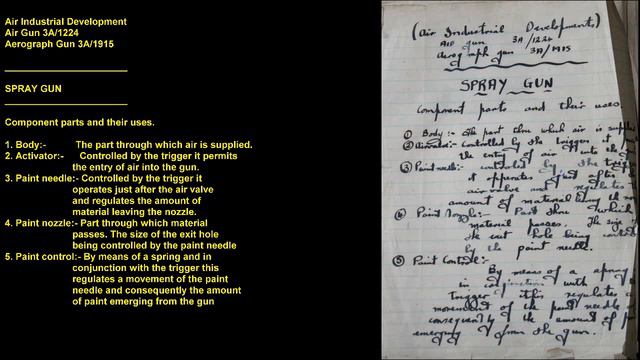 Air Industrial Development
Air Gun 3A/1224
Aerograph Gun 3A/1915
SPRAY GUN
Component parts and their uses.
1. Body:- The part through which air is supplied.
2. Activator:- Controlled by the trigger it permits
the entry of air into the gun.
3. Paint needle:- Controlled by the trigger it
operates just after the air valve
and regulates the amount of
material leaving the nozzle.
4. Paint nozzle:- Part through which material
passes. The size of the exit hole
being controlled by the paint needle
5. Paint control:- By means of a spring and in
conjunction with the trigger this
regulates a movement of the paint
needle and consequently the amount
of paint emerging from the gun
(Air Industrial Developments)
Air gun 3A/1224
Aerograph gun 3A/1915
SPRAY GUN
Component parts and their uses
① Body:- The part thro which air is suppli
② controlled by the trigger it
the entry of air into the
③ Paint needle:- controlled by the trigg
it operates just after
air valve and regulates
amount of material leaving the no
④ Paint Nozzle:- Part thro which
material passes. The size
the exit hole being contr
by the paint needle.
⑤ Paint Control:-
By means of a spring
in conjunction with
trigger this regulates
movement of the paint needle
consequently the amount of p
emerging from the gun.